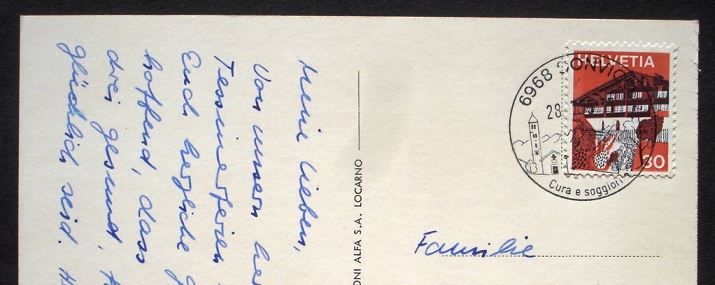 Meine Lieben,
Von unsern
Tessinerferien
Euch herzliche
hoffend, dass
drei gesund,
glücklich seid.
ONI ALFA S.A. LOCARNO
6968 SONVICO
28
Cura e soggiorn
HELVETIA
30
Familie